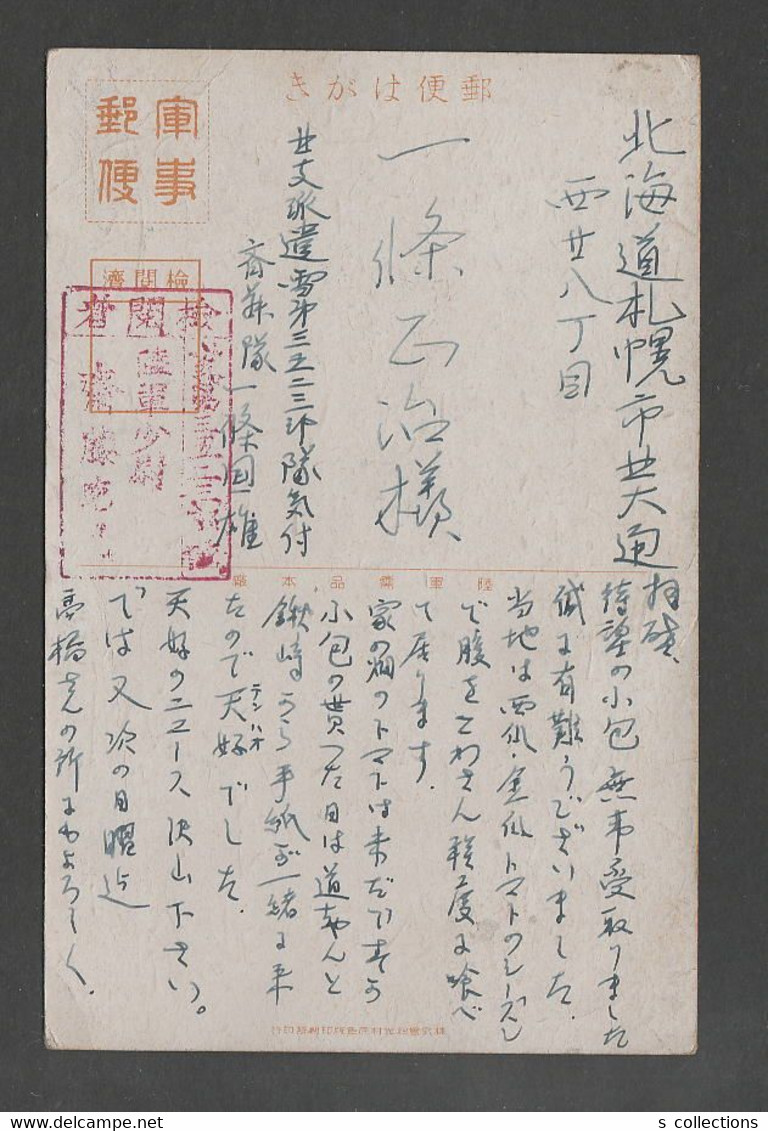 郵便はがき
軍事郵便
検閲済
検閲者
陸軍少尉
北海道札幌市北大通
西廿八丁目
一條正治様
北支派遣雪第三五二三部隊気付
斎藤隊
一條国雄
陸軍嘱品本廠
拝啓、
待望の小包無事受取りました
誠に有難うございました。
当地は西瓜・金瓜トマトのシーズン
で腹をこわさん程度に喰べ
て居ります。
家の畑のトマトは未だですか
小包の貰った日は道ちゃんと
鍬崎から手紙が一緒に来
たので天好でした。
テンハオ
天好のニュース沢山下さい。
では又次の日曜迄
高橋さんの所にもよろしく、
s collections